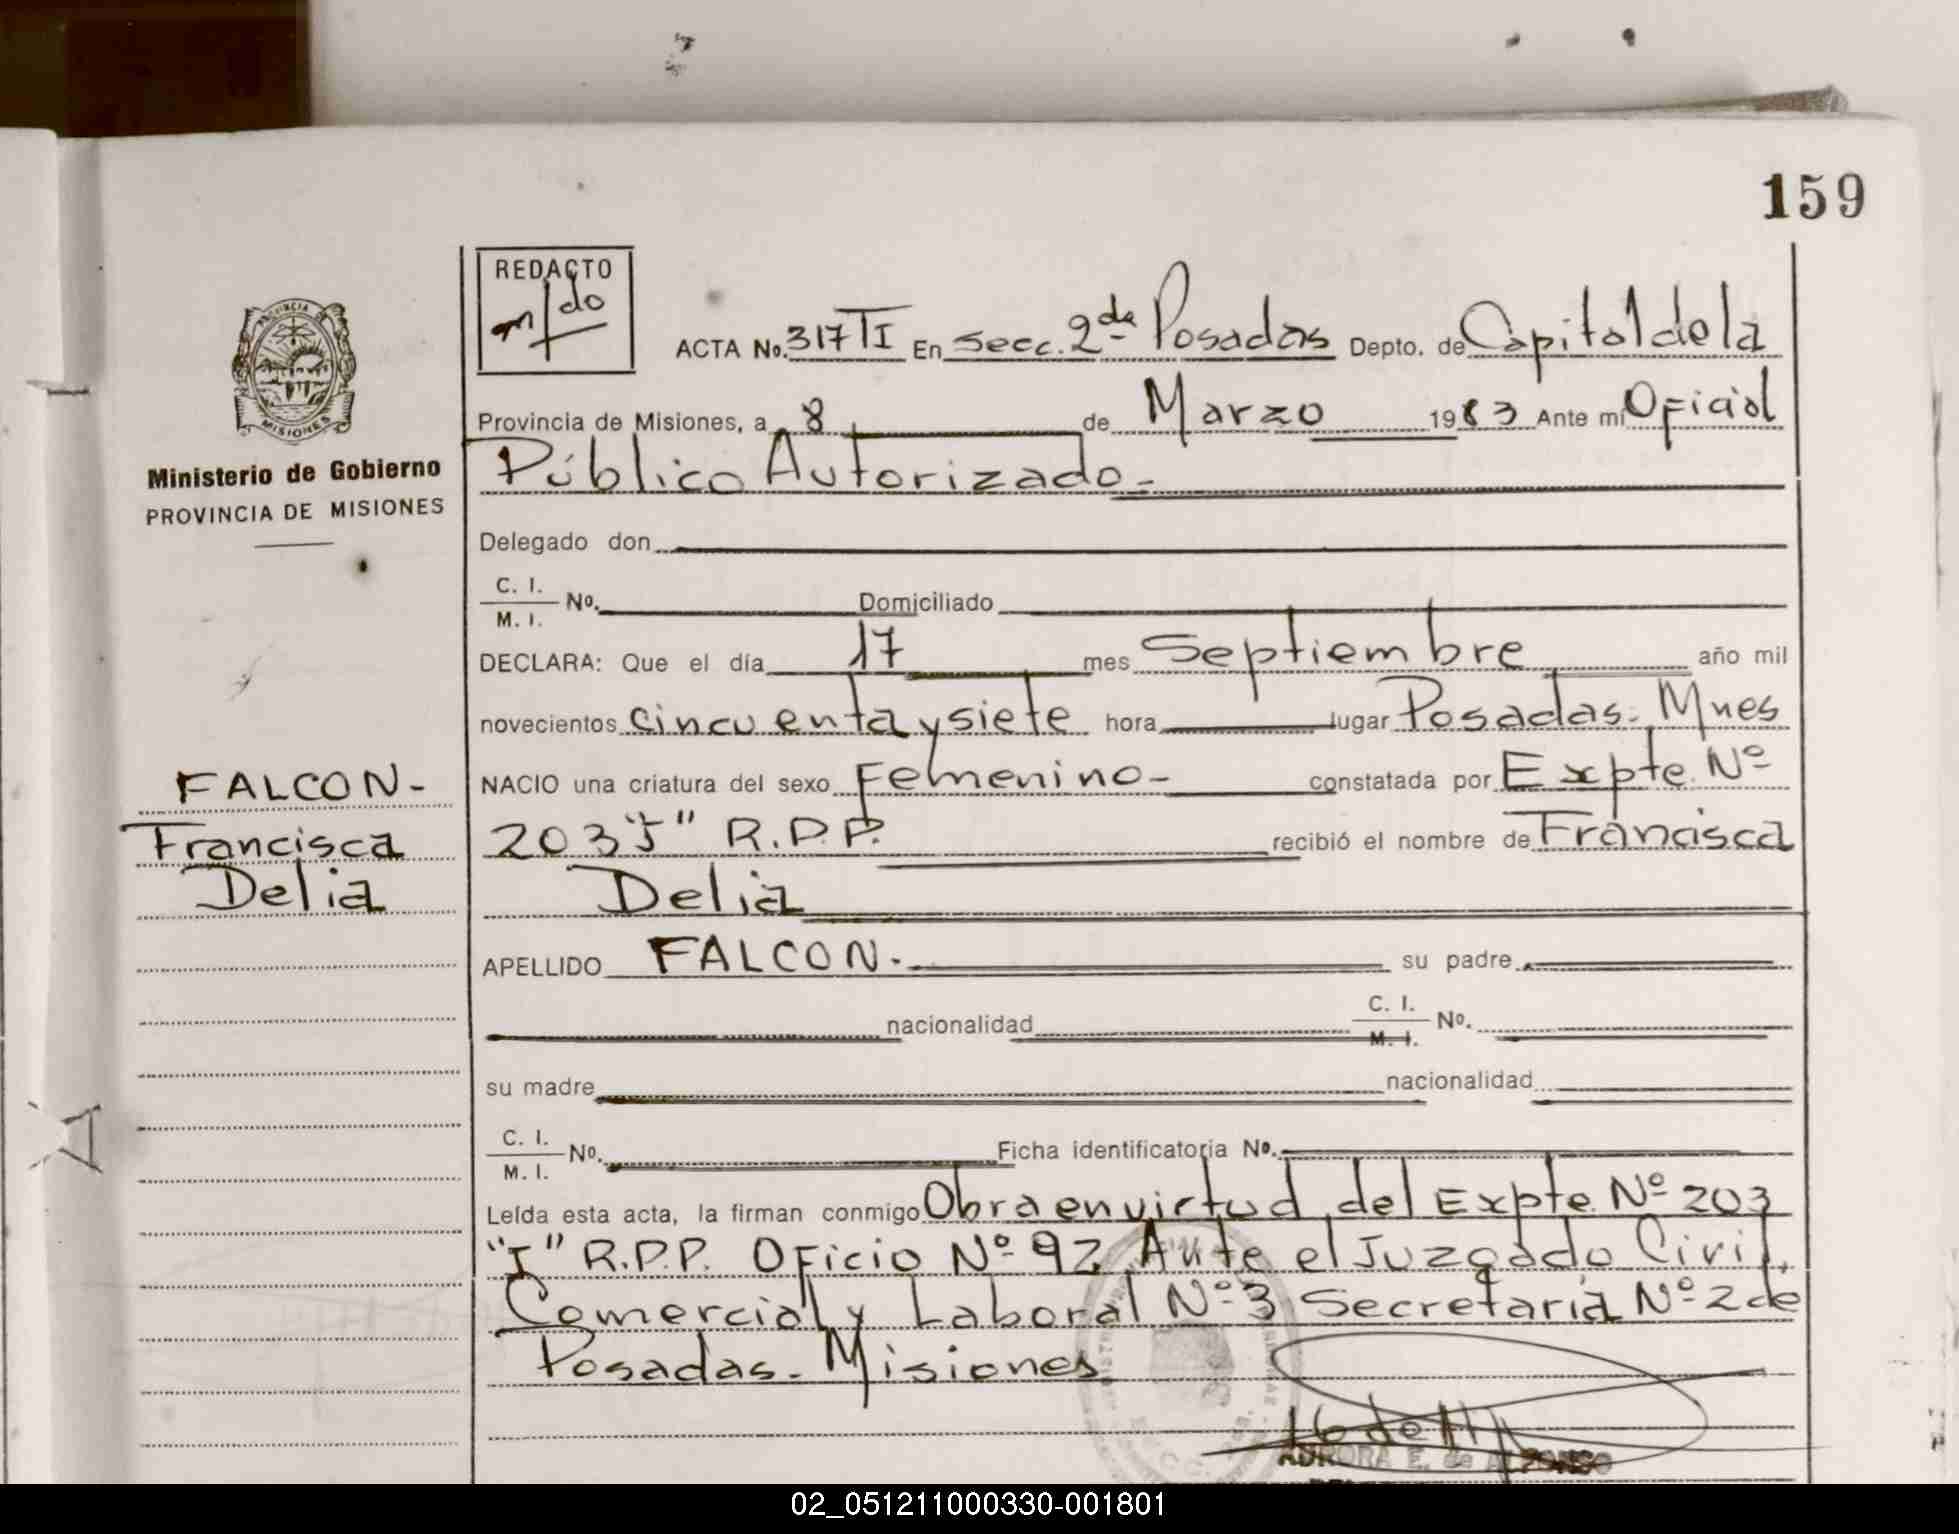 159
REDACTO
ACTA No. 317 TI En Secc. 2da Posadas Depto. de Capital de la
Provincia de Misiones, a 8 de Marzo 1983 Ante mi Oficial
Público Autorizado -
Ministerio de Gobierno
PROVINCIA DE MISIONES
Delegado don
C. I.
M. I. No. Domiciliado
DECLARA: Que el día 17 mes Septiembre año mil
novecientos cincuenta y siete hora lugar Posadas. Mnes
NACIO una criatura del sexo Femenino - constatada por Expte. Nº
203 "I" R.P.P. recibió el nombre de Francisca
Delia
FALCON -
Francisca
Delia
APELLIDO FALCON. su padre
nacionalidad C. I.
M. I. No.
su madre nacionalidad
C. I.
M. I. No. Ficha identificatoria No.
Leída esta acta, la firman conmigo Obra en virtud del Expte. Nº 203
"I" R.P.P. Oficio Nº 92 Ante el Juzgado Civil,
Comercial y Laboral Nº 3 Secretaria Nº 2 de
Posadas - Misiones
AURORA E. de
02_051211000330-001801